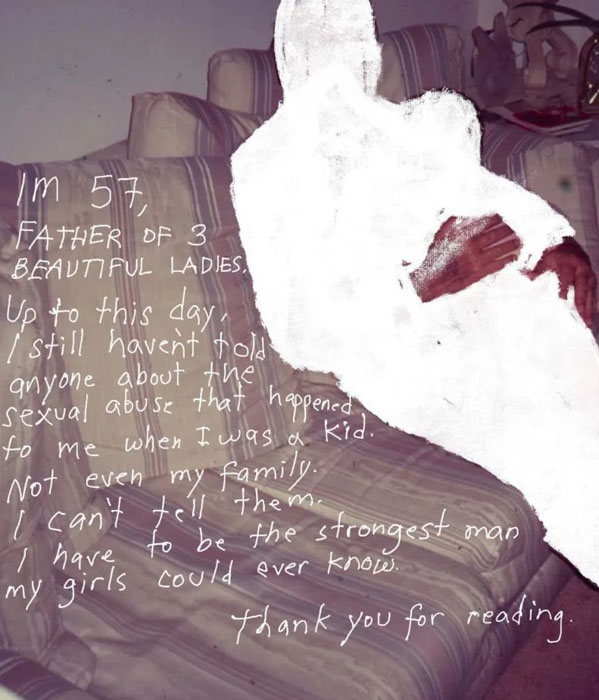 IM 57,
FATHER OF 3
BEAUTIFUL LADIES.
Up to this day,
I still haven't told
anyone about the
sexual abuse that happened
to me when I was a kid.
Not even my family.
I can't tell them.
I have to be the strongest man
my girls could ever know.
Thank you for reading.